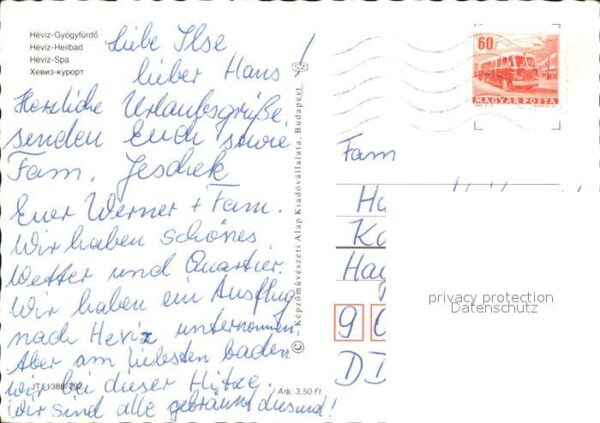 Hévíz-Gyógyfürdő
Hévíz-Heilbad
Hévíz-Spa
Хевиз-курорт
Liebe Ilse
lieber Hans!
Herzliche Urlaubsgrüße
senden Euch sowie
Fam. Jeschek
Euer Werner + Fam.
Wir haben schönes
Wetter und Quartier.
Wir haben ein Ausflug
nach Heviz unternommen
Aber am liebsten baden
wir bei dieser Hitze.
Wir sind alle gebräunt
Ára: 3,50 Ft
© – Képzőművészeti Alap Kiadóvállalata, Budapest
60f
MAGYAR POSTA
Fam
Ha
9
DD
privacy protection
Datenschutz